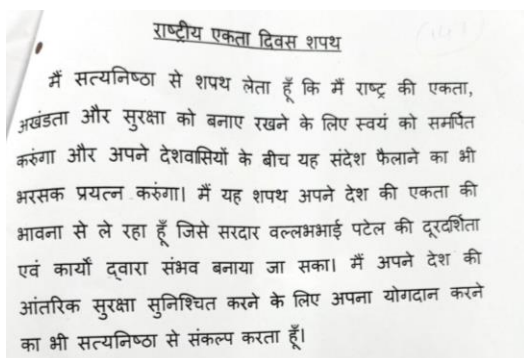 राष्ट्रीय एकता दिवस शपथ
मैं सत्यनिष्ठा से शपथ लेता हूँ कि मैं राष्ट्र की एकता,
अखंडता और सुरक्षा को बनाए रखने के लिए स्वयं को समर्पित
करुंगा और अपने देशवासियों के बीच यह संदेश फैलाने का भी
भरसक प्रयत्न करुंगा। मैं यह शपथ अपने देश की एकता की
भावना से ले रहा हूँ जिसे सरदार वल्लभभाई पटेल की दूरदर्शिता
एवं कार्यों द्वारा संभव बनाया जा सका। मैं अपने देश की
आंतरिक सुरक्षा सुनिश्चित करने के लिए अपना योगदान करने
का भी सत्यनिष्ठा से संकल्प करता हूँ।